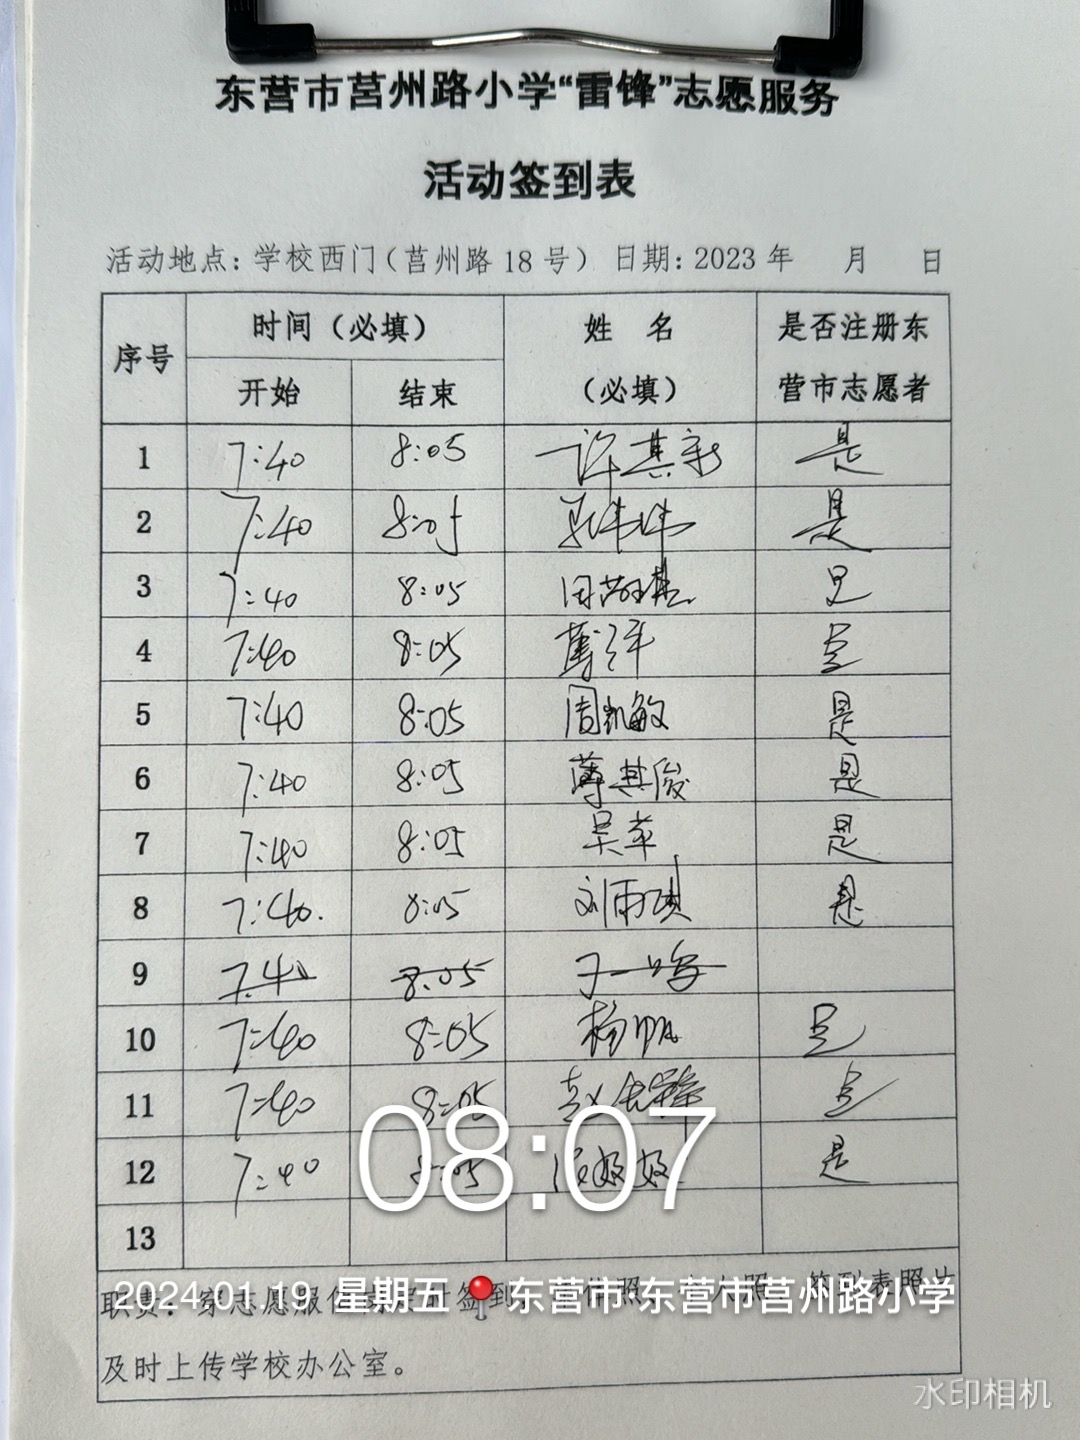 东营市莒州路小学“雷锋”志愿服务
活动签到表
活动地点：学校西门（莒州路 18 号） 日期：2023 年 月 日
序号 时间（必填） 姓 名 是否注册东
开始 结束 （必填） 营市志愿者
1 7:40 8:05 许其新 是
2 7:40 8:05 伟伟 是
3 7:40 8:05 田 是
4 7:40 8:05 萍 是
5 7:40 8:05 周凯敏 是
6 7:40 8:05 薄其俊 是
7 7:40 8:05 吴苹 是
8 7:40. 8:05 刘雨琪 是
9 7.40 8:05 于一
10 7:40 8:05 杨帆 是
11 7:40 8:05 赵 是
12 7:40 8:05 姣姣 是
13
08:07
职责：穿志愿服 签到 照 签到表照片
及时上传学校办公室。
2024.01.19 星期五 东营市·东营市莒州路小学
水印相机